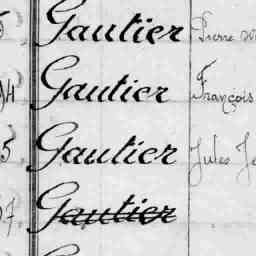 5 Gautier Pierre
94 Gautier François
5 Gautier Jules
97 Gautier